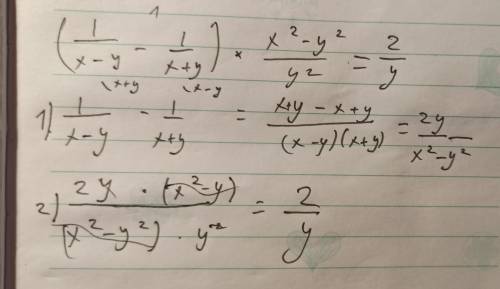 (1/(x-y) - 1/(x+y)) * (x²-y²)/y² = 2/y
\x+y \x-y
1) 1/(x-y) - 1/(x+y) = (x+y-x+y)/((x-y)(x+y)) = 2y/(x²-y²)
2) (2y · (x²-y))/((x²-y²) · y²) = 2/y